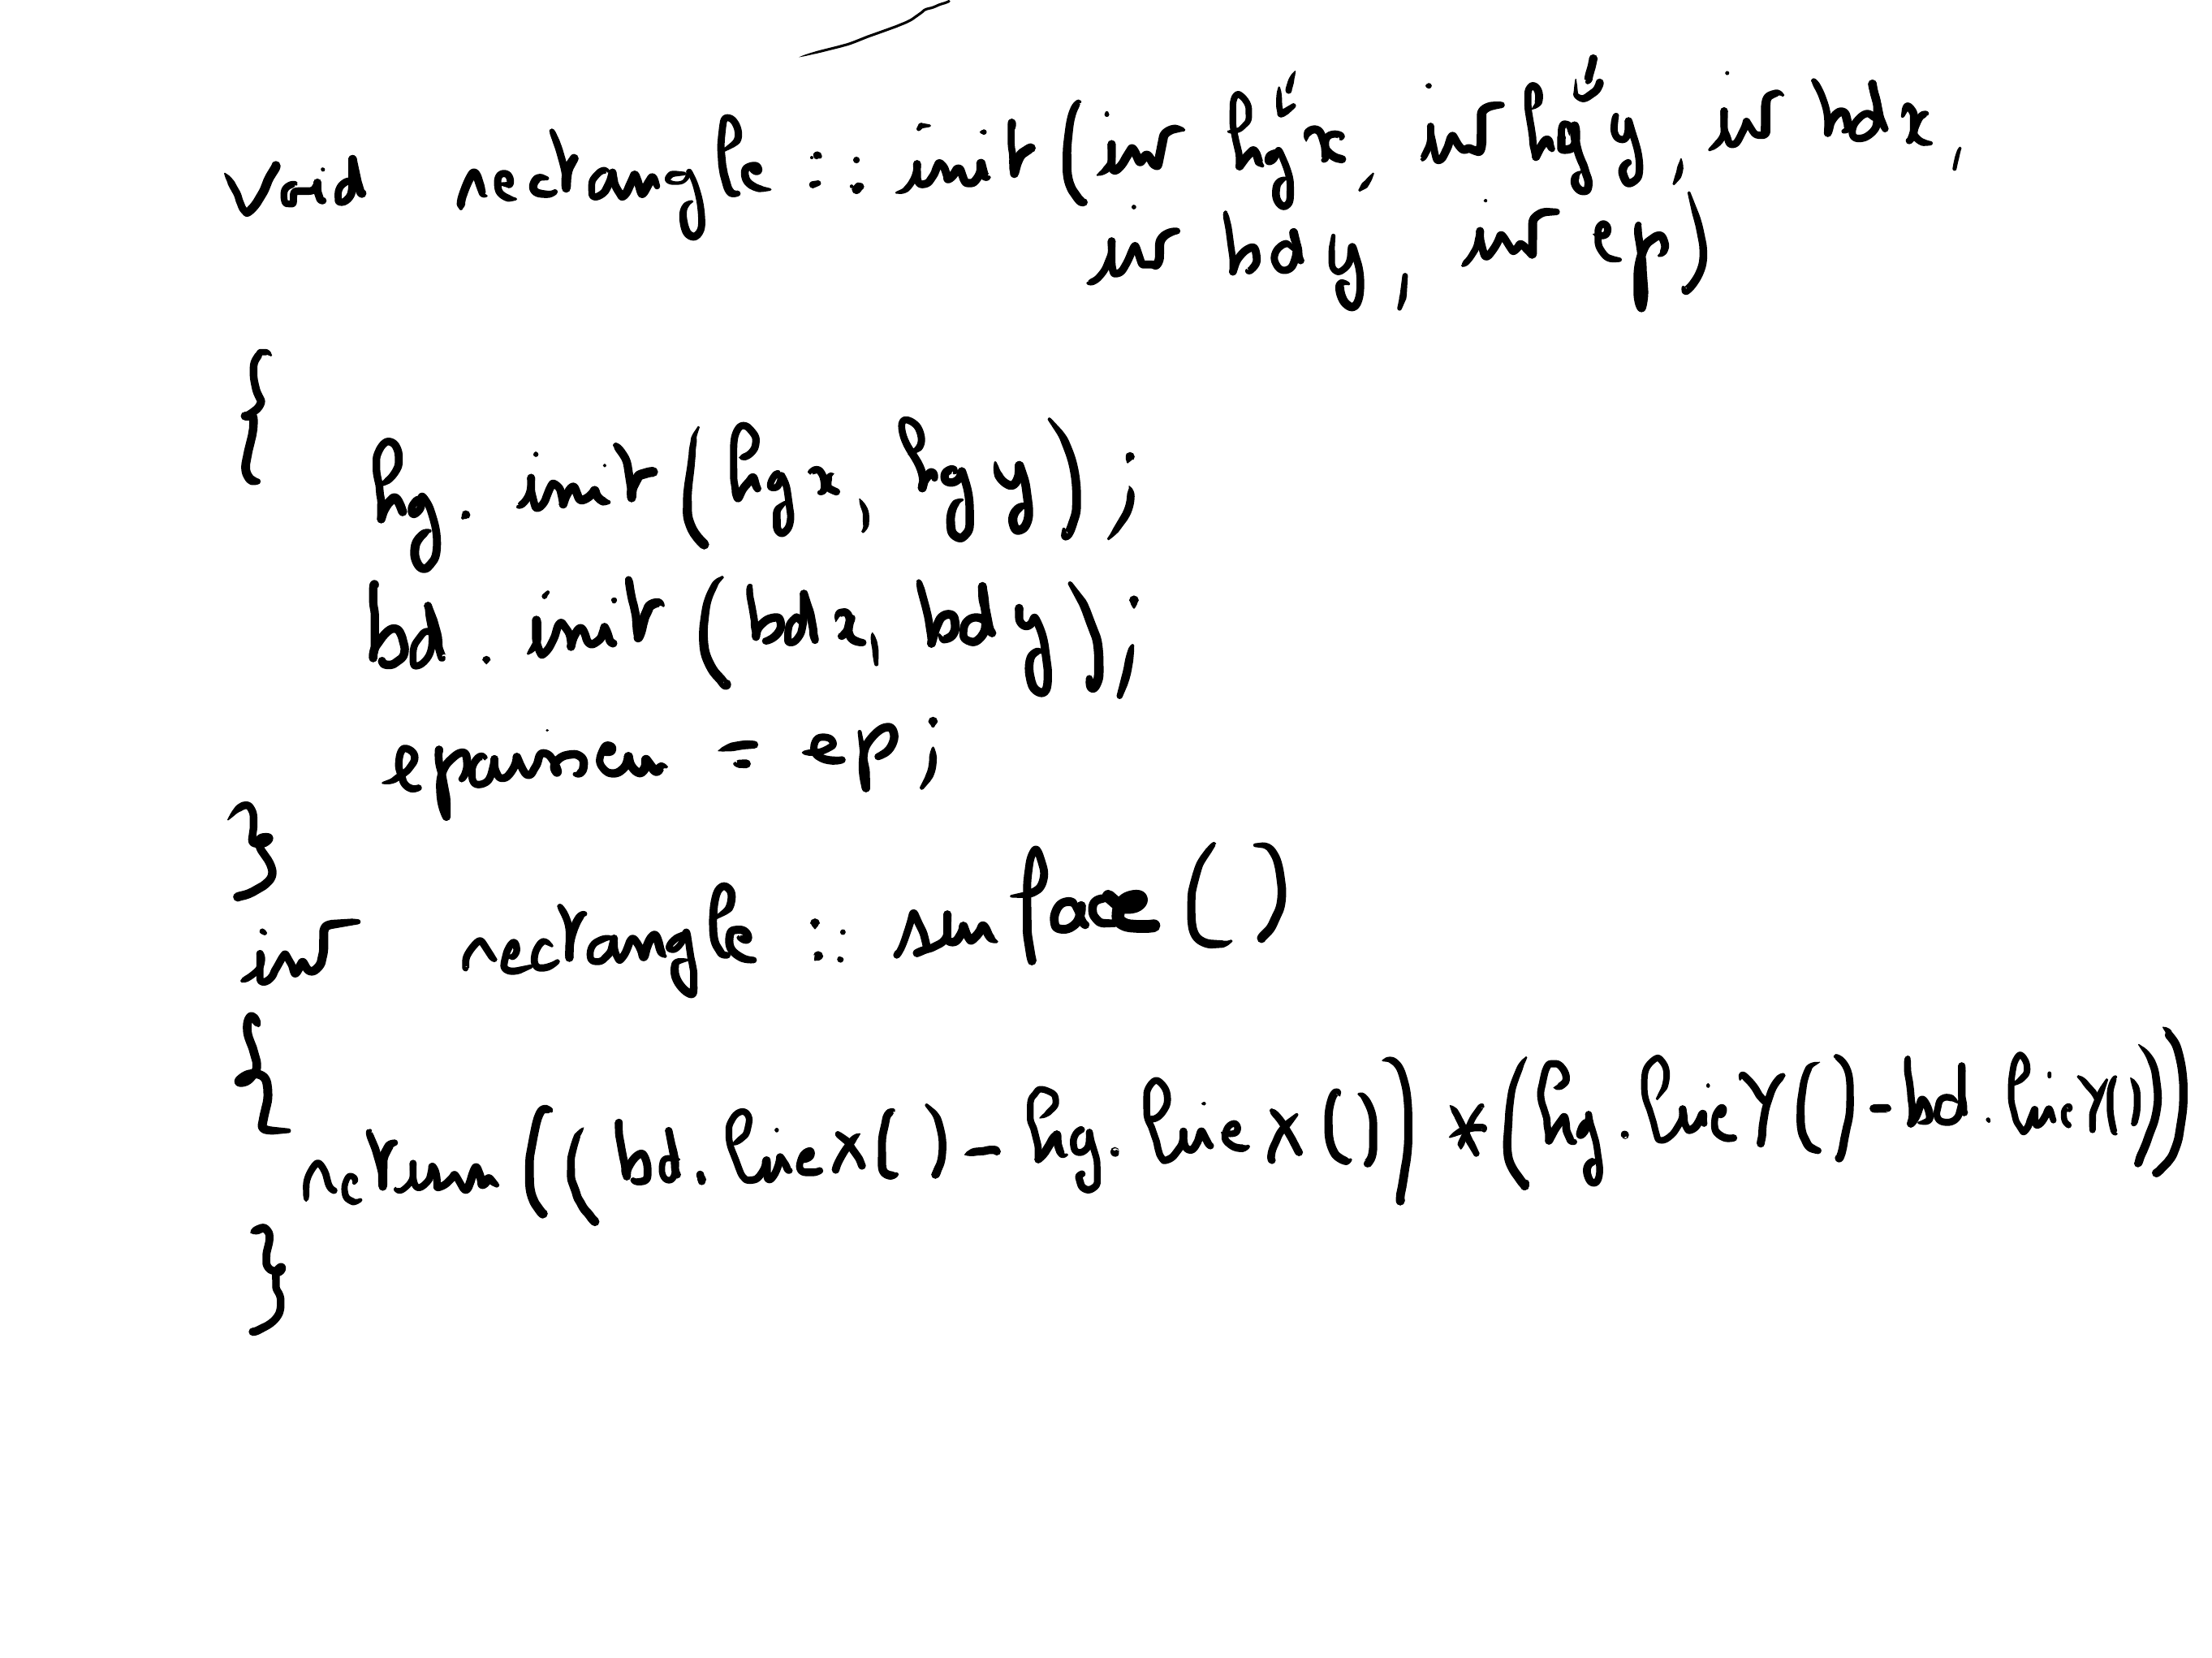 void rectangle :: init (int hgx, int hgy, int bdx,
int bdy, int ep)
{
hg. init (hgx, hgy);
bd. init (bdx, bdy);
epaisseur = ep;
}
int rectangle :: surface ()
{
return ((bd.lireX() - hg.lireX()) * (hg.lireY() - bd.lireY()))
}